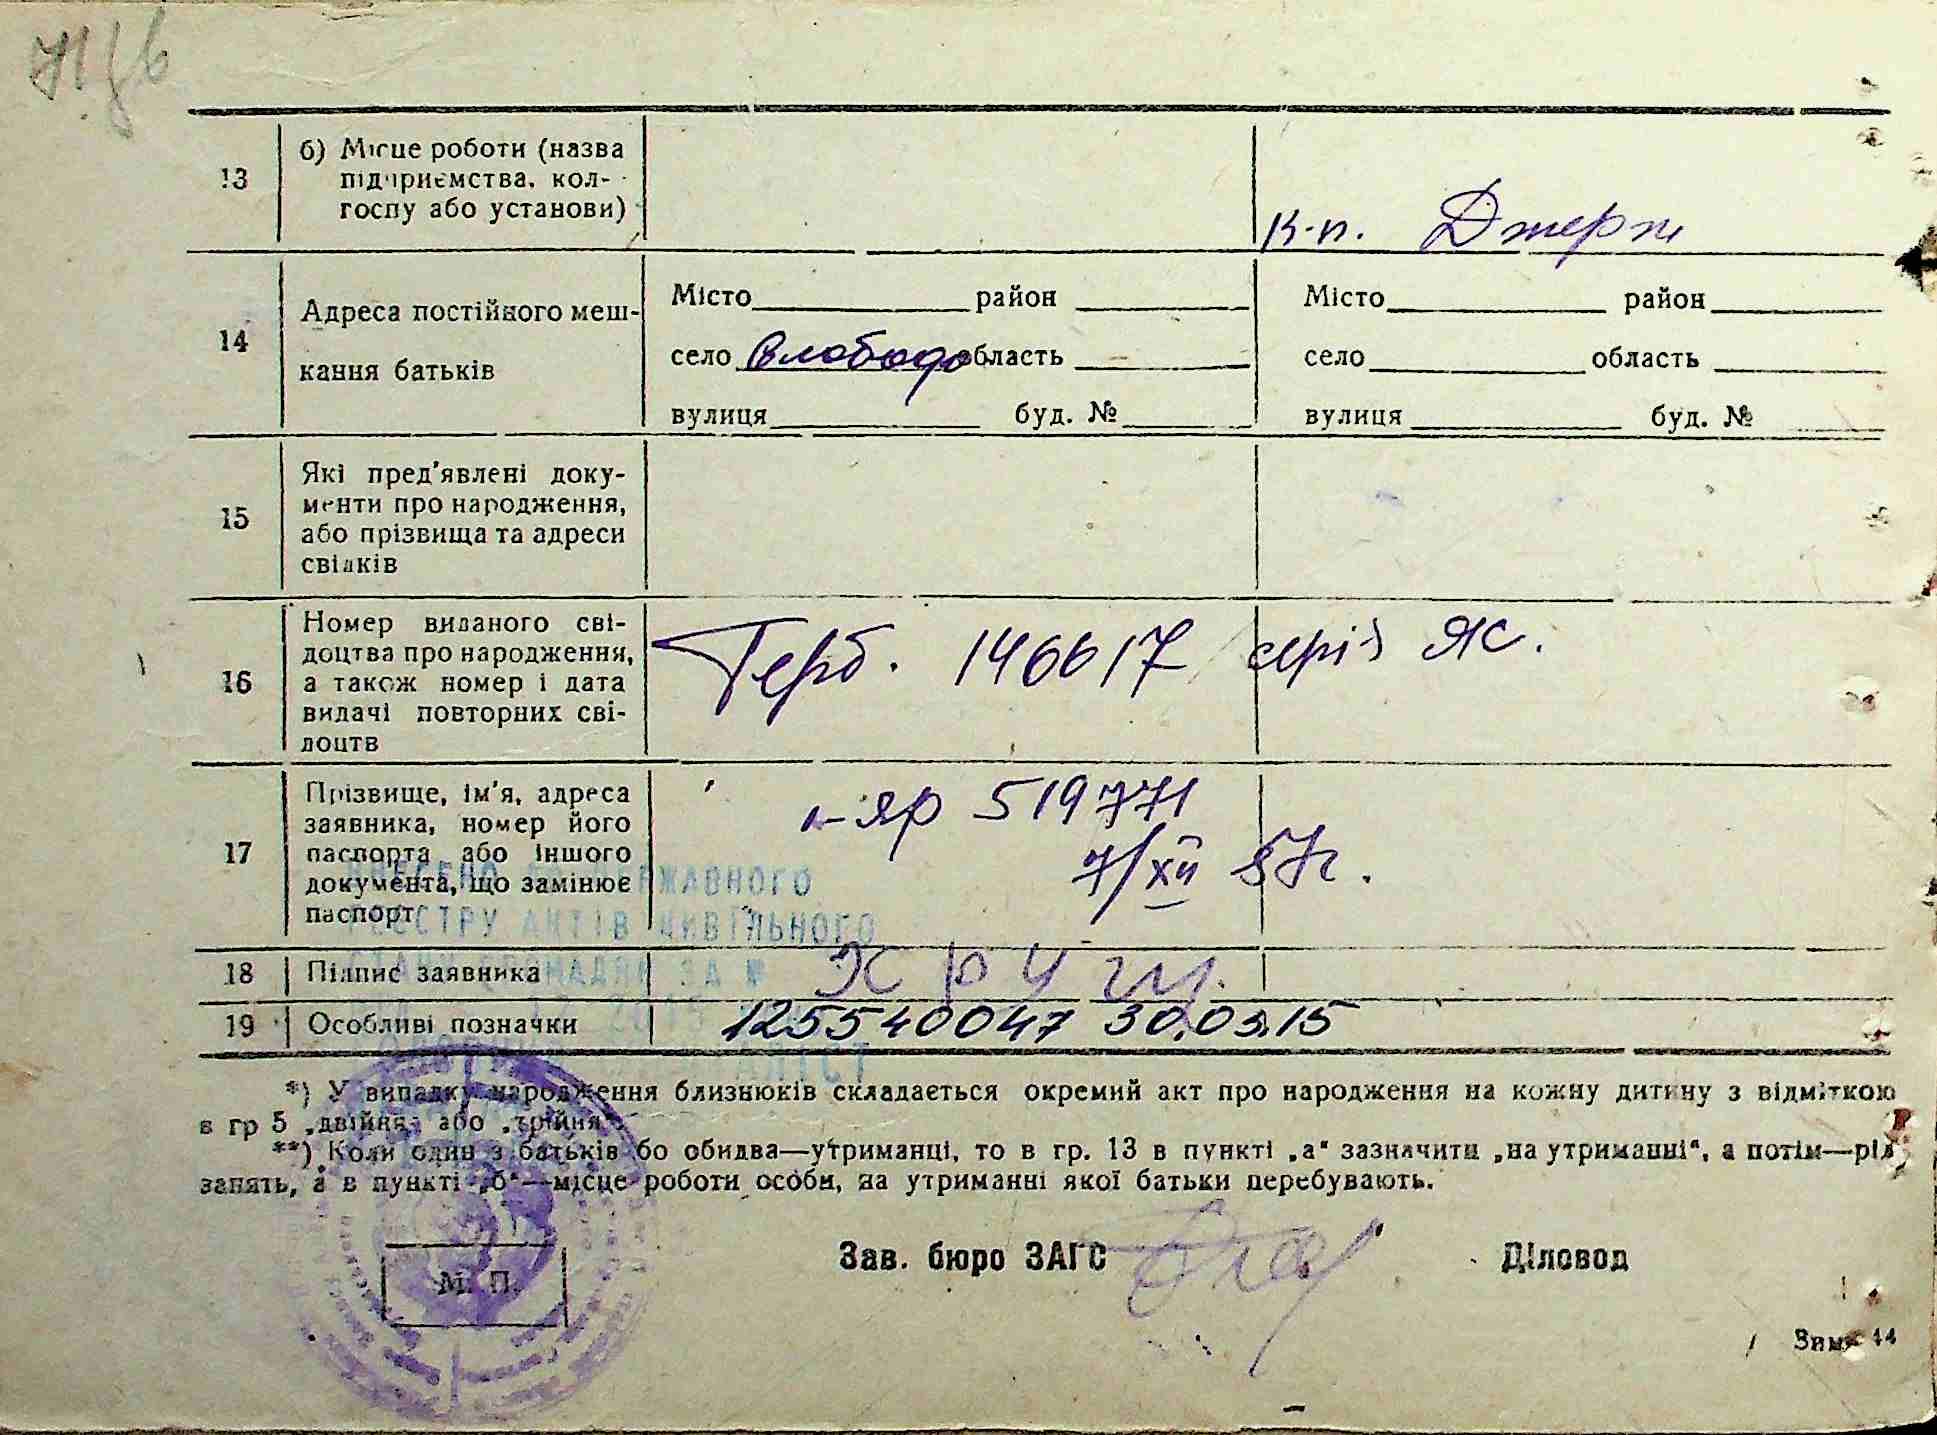 13 б) Місце роботи (назва
підприємства, кол-
госпу або установи)
к-п. Джерж
14 Адреса постійного меш-
кання батьків
Місто район Місто район
село Слобода область село область
вулиця буд. № вулиця буд. №
15 Які пред'явлені доку-
менти про народження,
або прізвища та адреси
свідків
16 Номер виданого сві-
доцтва про народження,
а також номер і дата
видачі повторних сві-
доцтв
Герб. 146617 серія ЯС.
17 Прізвище, ім'я, адреса
заявника, номер його
паспорта або іншого
документа, що замінює
паспорт
яр 519771
7/XII 57г.
ВНЕСЕНО ДО ДЕРЖАВНОГО
РЕЄСТРУ АКТІВ ЦИВІЛЬНОГО
СТАНУ ГРОМАДЯН ЗА №
18 Підпис заявника
19 Особливі позначки 125540047 30.03.15
*) У випадку народження близнюків складається окремий акт про народження на кожну дитину з відміткою
в гр 5 „двійня“ або „трійня“.
**) Коли один з батьків бо обидва—утриманці, то в гр. 13 в пункті „а“ зазначити „на утриманні“, а потім—рід
занять, а в пункті „б“—місце роботи особи, на утриманні якої батьки перебувають.
Зав. бюро ЗАГС Діловод
М. П.